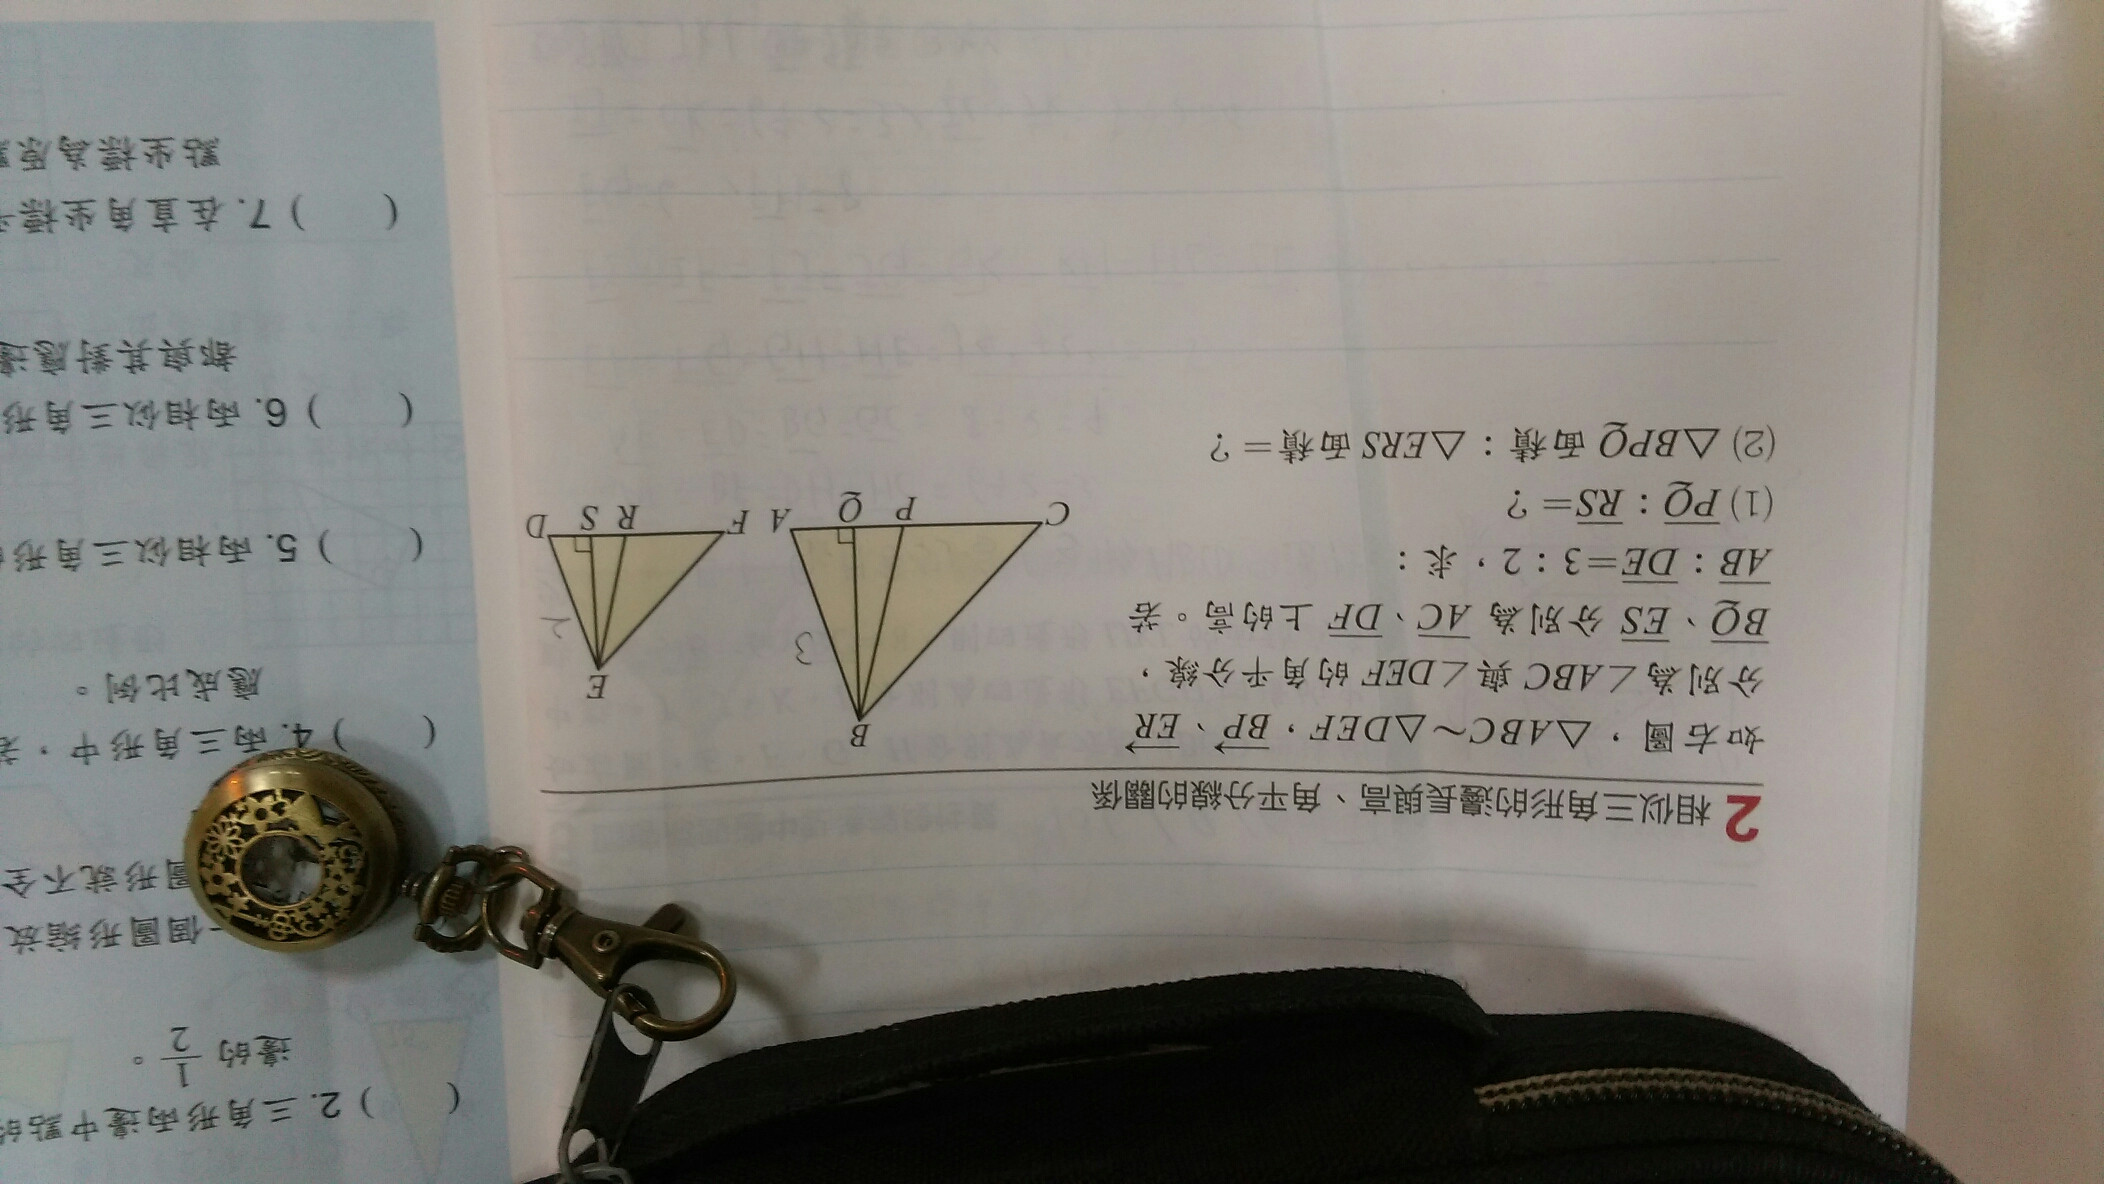 2 相似三角形的邊長與高、角平分線的關係
如右圖，△ABC～△DEF，BP、ER
分別為∠ABC與∠DEF的角平分線，
BQ、ES 分別為 AC、DF 上的高。若
AB：DE=3：2，求：
(1) PQ：RS=？
(2) △BPQ 面積：△ERS 面積=？
B
3
C P Q A
E
2
F R S D
( ) 2. 三角形兩邊中點的
邊的 1/2 。
個圖形縮放
圖形就不全
( ) 4. 兩三角形中，若
應成比例。
( ) 5. 兩相似三角形的
( ) 6. 兩相似三角形
都與其對應邊
( ) 7. 在直角坐標平
點坐標為原點